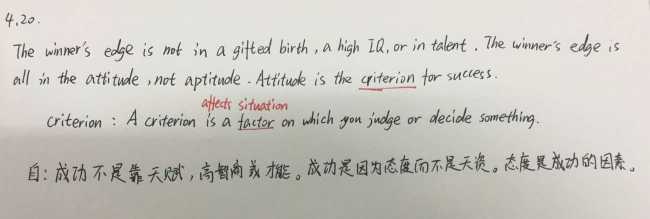 4.20.
The winner's edge is not in a gifted birth, a high IQ, or in talent. The winner's edge is
all in the attitude, not aptitude. Attitude is the criterion for success.
affects situation
criterion: A criterion is a factor on which you judge or decide something.
自:成功不是靠天赋,高智商或才能。成功是因为态度而不是天资。态度是成功的因素。